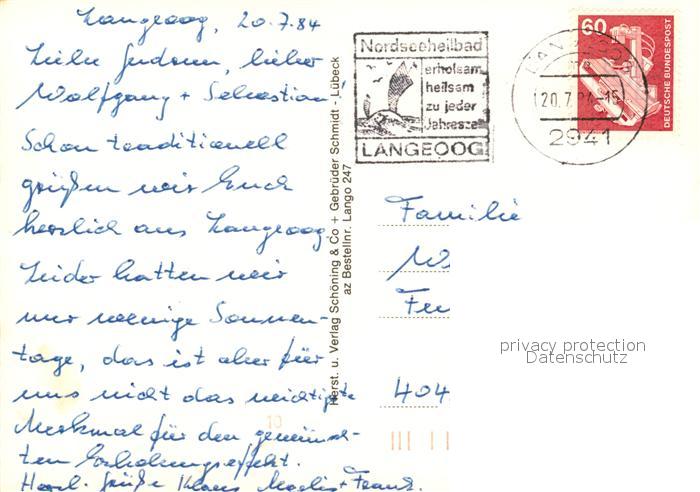 Langeoog, 20.7.84
Liebe Gudrun, lieber
Wolfgang + Sebastian!
Schon traditionell
grüßen wir Euch
herzlich aus Langeoog.
Leider hatten wir
nur wenige Sonnen-
tage, das ist aber für
uns nicht das wichtigste
Merkmal für den gewünsch-
ten Erholungseffekt.
Herzl. Grüße Klaus Marlis + Frank.
Herst. u. Verlag Schöning & Co + Gebrüder Schmidt - Lübeck
az Bestellnr. Lango 247
Nordseeheilbad
erholsam
heilsam
zu jeder
Jahreszeit
LANGEOOG
LANGEOOG
20.7.84-15
2941
60
DEUTSCHE BUNDESPOST
Familie
W
404
privacy protection
Datenschutz
10